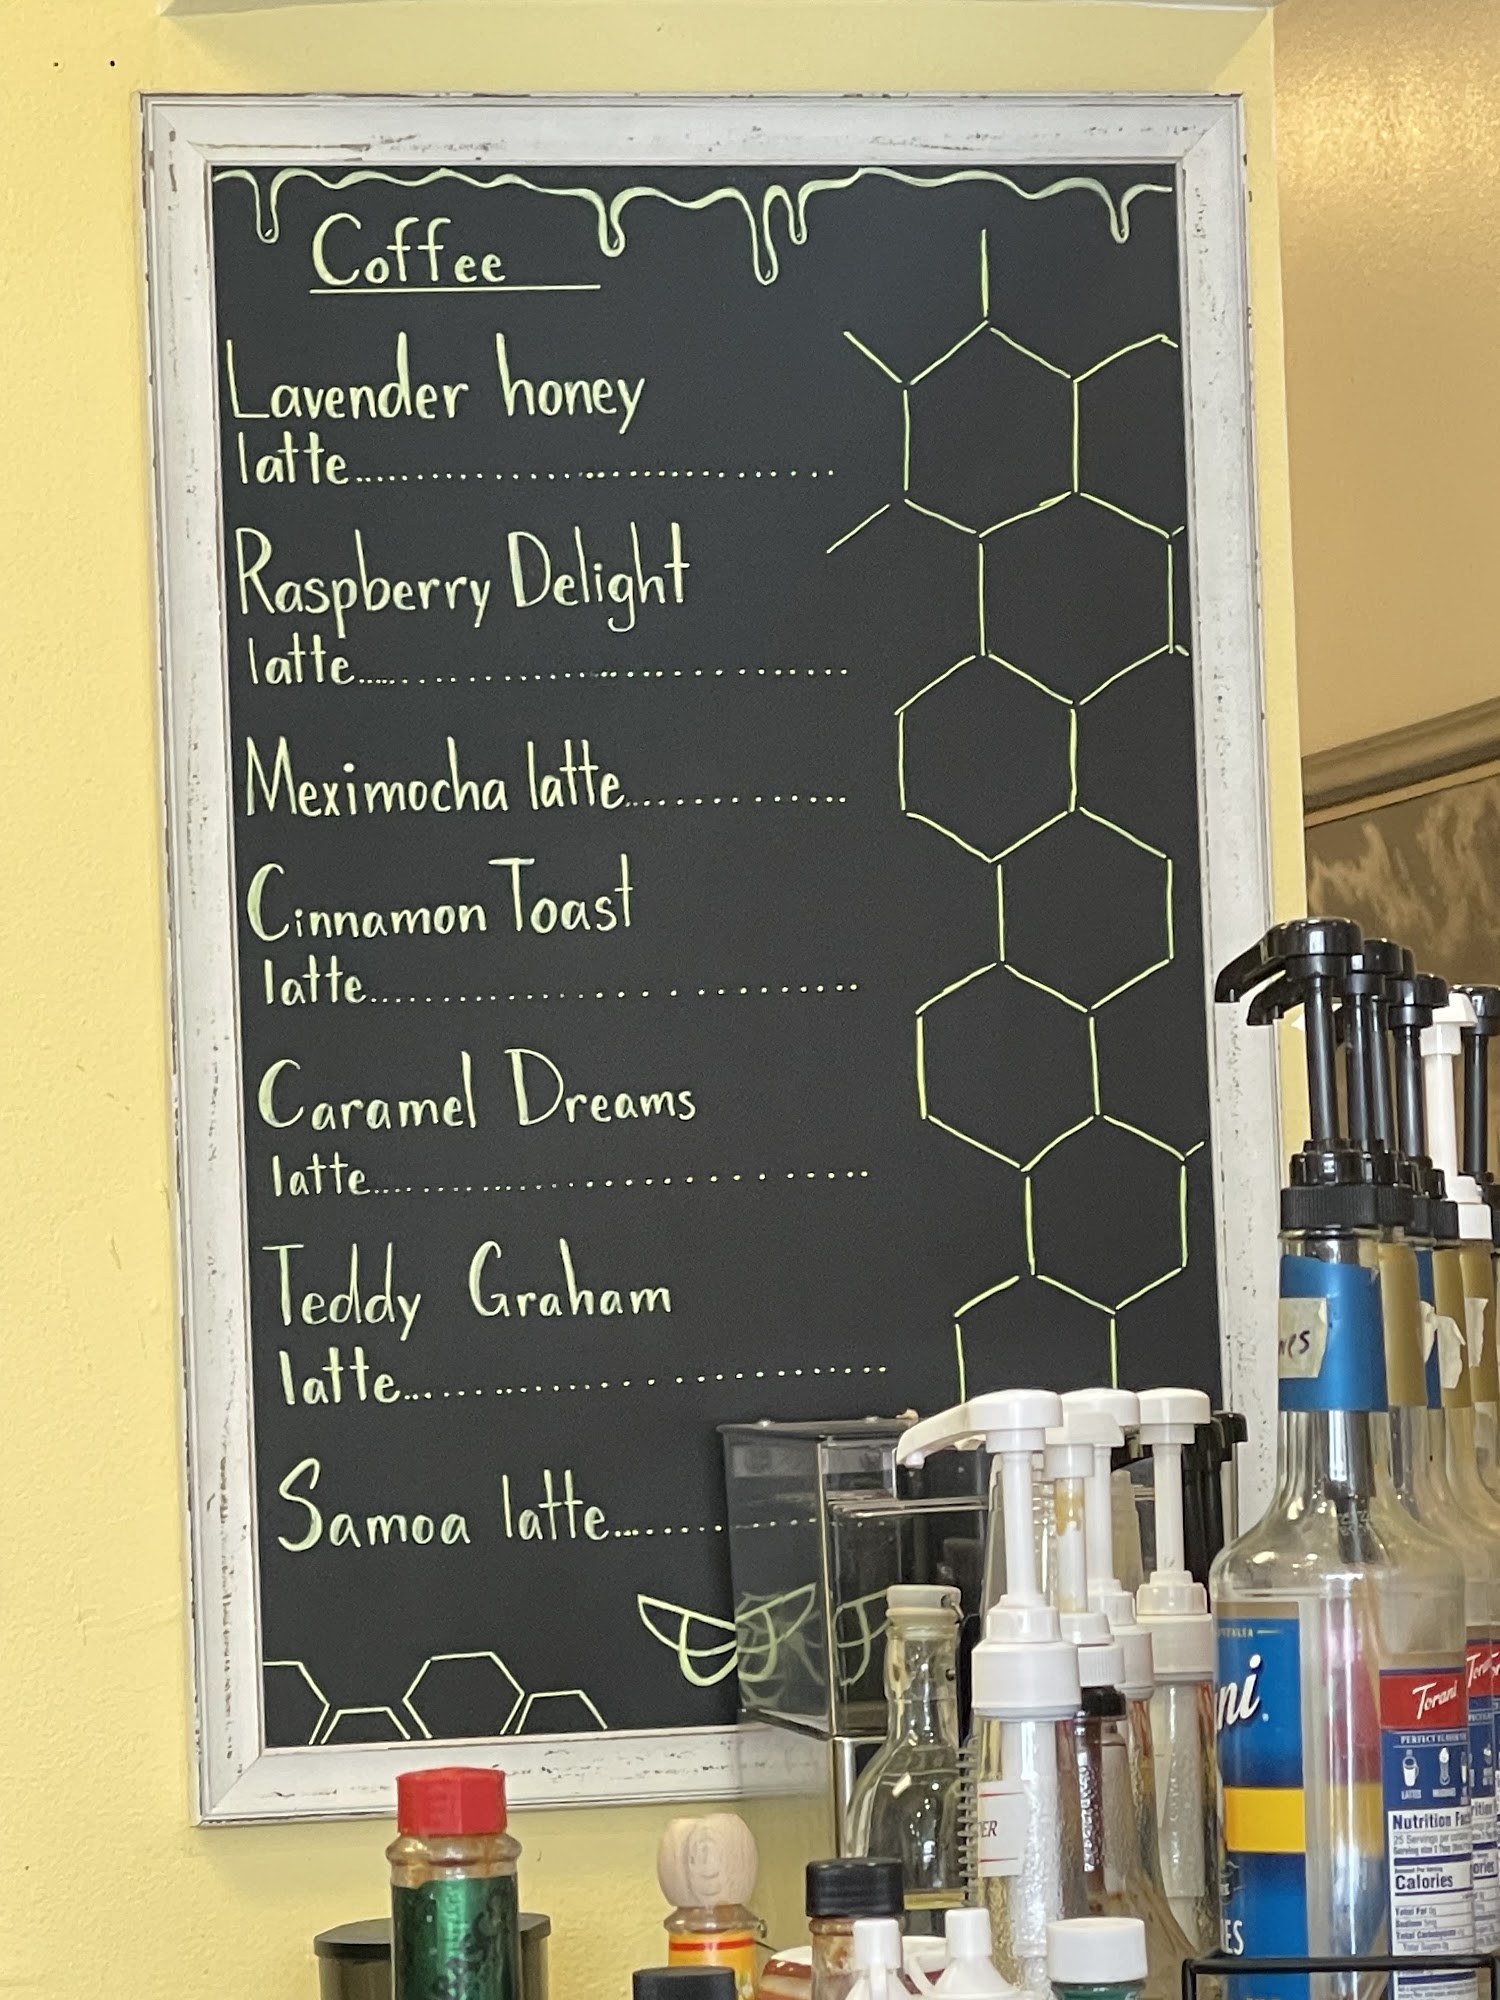 Coffee
Lavender honey
latte....................................
Raspberry Delight
latte....................................
Meximocha latte................
Cinnamon Toast
latte....................................
Caramel Dreams
latte....................................
Teddy Graham
latte....................................
Samoa latte................
Torani
PERFECT
Nutrition
25 Servings per
Calories